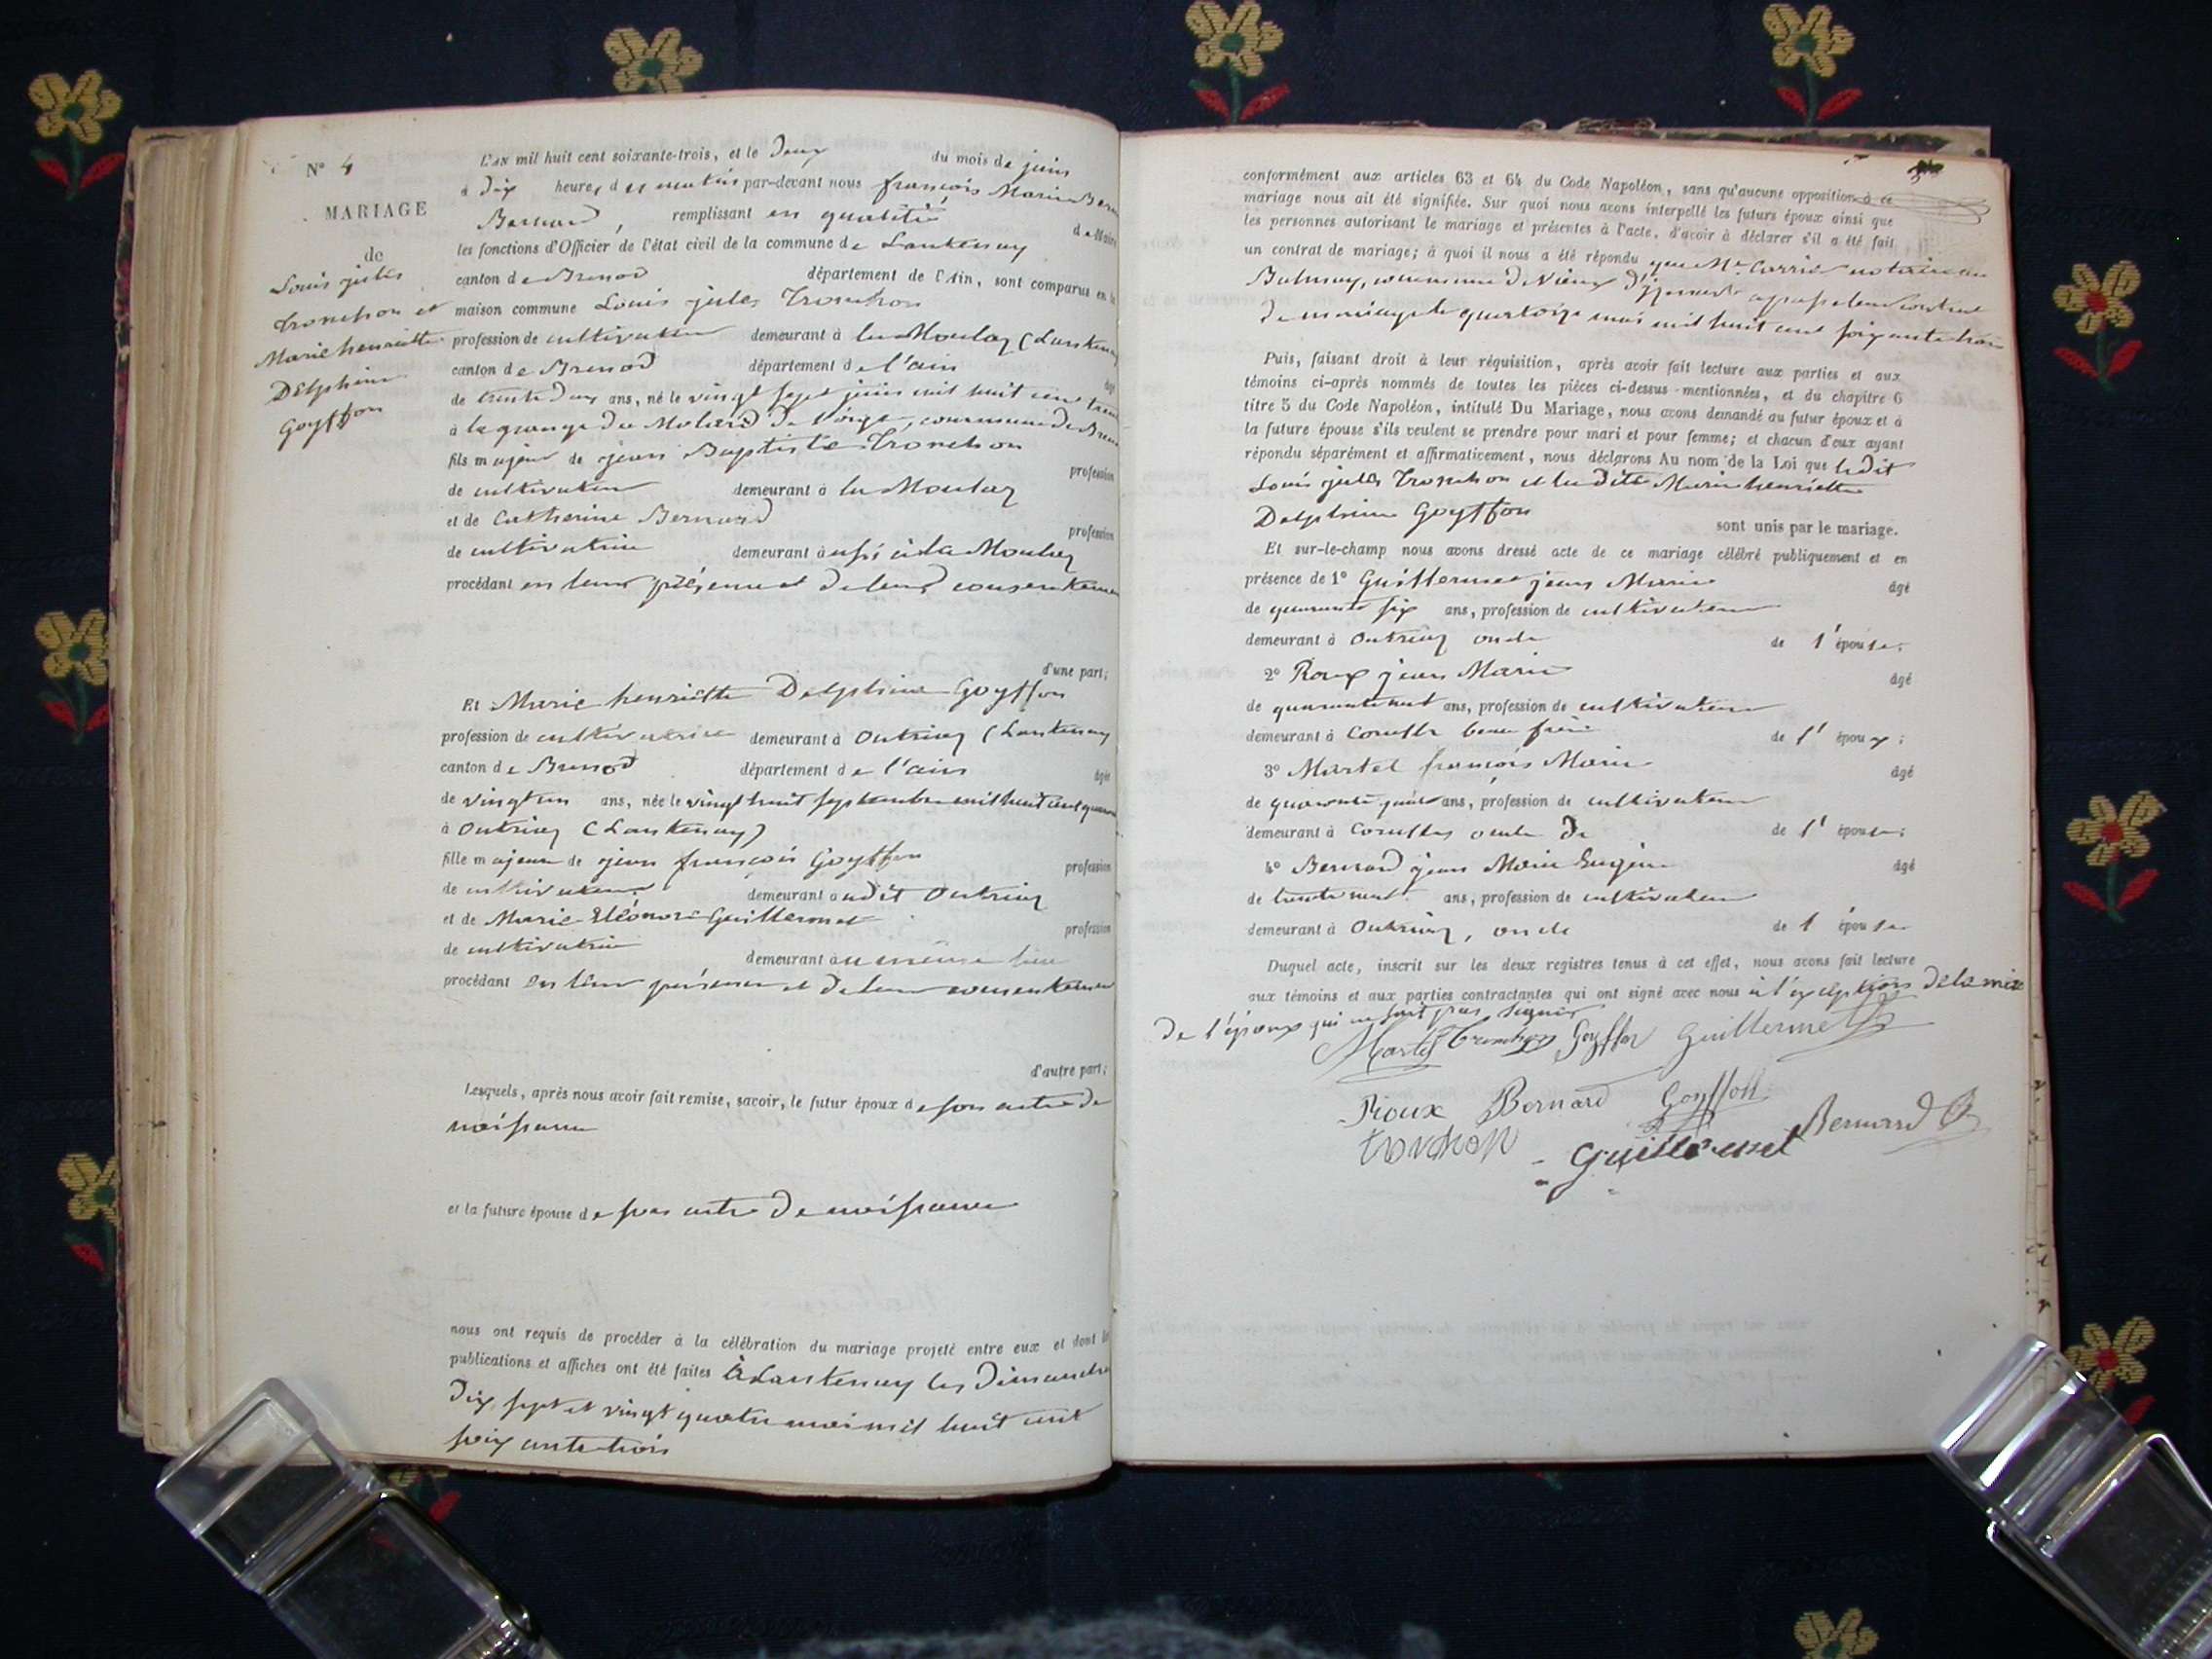 N° 4
MARIAGE
de
Louis jules
tronchon et
Marie henriette
Delphine
Goyffon
L'AN mil huit cent soixante-trois, et le Deux du mois de juin
à Dix heures du matin par-devant nous françois Marie
Bernard, remplissant en qualité de Maire
les fonctions d'Officier de l'état civil de la commune de Lantenay
canton de Brenod département de l'Ain, sont comparus en la
maison commune Louis jules Tronchon
profession de cultivateur demeurant à la Moulaz (Lantenay
canton de Brenod département de l'ain
de trente Deux ans, né le vingt sept juin mil huit cent
à la grange du Molard De Lorge, commune de
fils majeur de jean Baptiste Tronchon profession
de cultivateur demeurant à la Moulaz
et de Catherine Bernard profession
de cultivatrice demeurant aussi à la Moulaz
procédant en leur présence et De leur consentement
d'une part;
Et Marie henriette Delphine Goyffon
profession de cultivatrice demeurant à Outriaz (Lantenay
canton de Brenod département de l'ain âgée
de vingt un ans, née le vingt huit septembre mil huit cent
à Outriaz (Lantenay)
fille majeure de jean françois Goyffon profession
de cultivateur demeurant audit Outriaz
et de Marie Eléonore Guillermet profession
de cultivatrice demeurant au même lieu
procédant en leur présence et De leur consentement
d'autre part;
Lesquels, après nous avoir fait remise, savoir, le futur époux de son acte de
naissance
et la future épouse de son acte De naissance
nous ont requis de procéder à la célébration du mariage projeté entre eux et dont les
publications et affiches ont été faites à Lantenay les Dimanches
Dix sept et vingt quatre mai mil huit cent
soixante trois
conformément aux articles 63 et 64 du Code Napoléon, sans qu'aucune opposition à ce
mariage nous ait été signifiée. Sur quoi nous avons interpellé les futurs époux ainsi que
les personnes autorisant le mariage et présentes à l'acte, d'avoir à déclarer s'il a été fait
un contrat de mariage; à quoi il nous a été répondu que Me Carrier notaire au
Balmay, commune De Vieux D'izenave a passé leur contrat
De mariage le quatorze mai mil huit cent soixante trois
Puis, faisant droit à leur réquisition, après avoir fait lecture aux parties et aux
témoins ci-après nommés de toutes les pièces ci-dessus mentionnées, et du chapitre 6
titre 5 du Code Napoléon, intitulé Du Mariage, nous avons demandé au futur époux et à
la future épouse s'ils veulent se prendre pour mari et pour femme; et chacun d'eux ayant
répondu séparément et affirmativement, nous déclarons Au nom de la Loi que ledit
Louis jules Tronchon et la Dite Marie henriette
Delphine Goyffon sont unis par le mariage.
Et sur-le-champ nous avons dressé acte de ce mariage célébré publiquement et en
présence de 1° Guillermet jean Marie âgé
de quarante six ans, profession de cultivateur
demeurant à Outriaz oncle de l'épouse;
2° Roux jean Marie âgé
de quarante ans, profession de cultivateur
demeurant à beau frère de l'époux;
3° Martel françois Marie âgé
de quarante ans, profession de cultivateur
demeurant à oncle de de l'épouse;
4° Bernard jean Marie Eugène âgé
de trente neuf ans, profession de cultivateur
demeurant à Outriaz, oncle de l épouse
Duquel acte, inscrit sur les deux registres tenus à cet effet, nous avons fait lecture
aux témoins et aux parties contractantes qui ont signé avec nous à l'exception De la mère
De l'époux qui ne sait pas signer
Martel Tronchon Goyffon Guillermet
Roux Bernard Goyffon
tronchon Guillermet Bernard